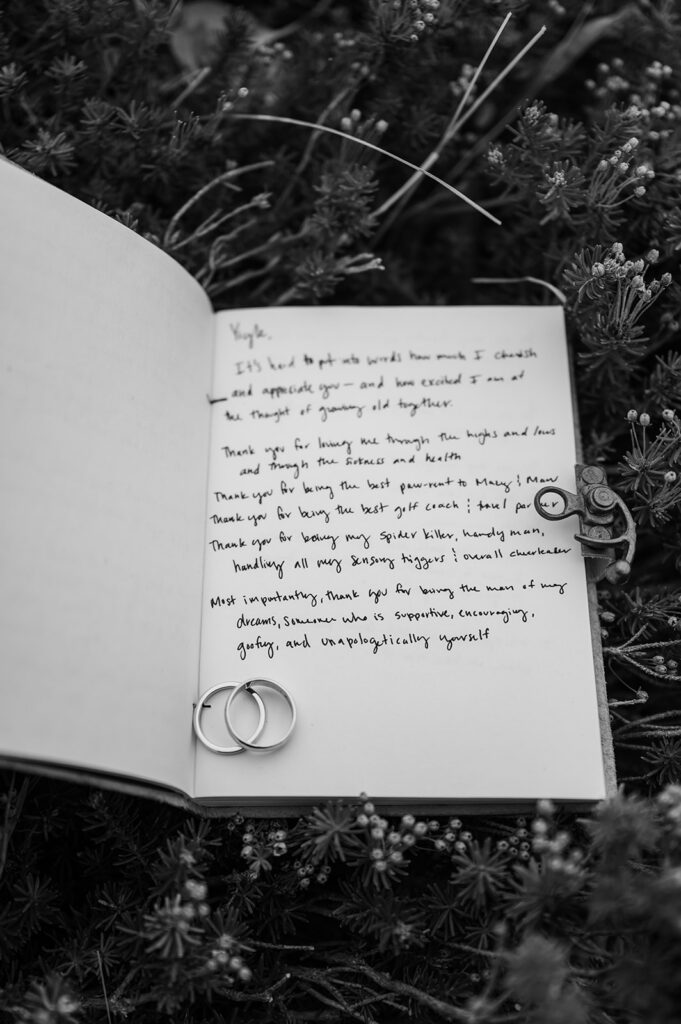 It's hard to put into words how much I cherish
and appreciate you — and how excited I am at
the thought of growing old together.
Thank you for loving me through the highs and lows
and through the sickness and health
Thank you for being the best paw-rent to Macy &
Thank you for being the best golf coach & travel partner
Thank you for being my spider killer, handy man,
handling all my sensory triggers & overall cheerleader
Most importantly, thank you for being the man of my
dreams, someone who is supportive, encouraging,
goofy, and unapologetically yourself